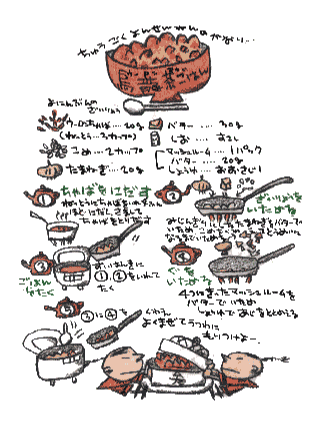 ちゅうごくよんせんねんのかおり…
烏龍茶ごはん
よにんぶんの
ざいりょう
ウーロンちゃば……20g
(ねっとう…3カップ)
こめ…2カップ
たまねぎ…20g
バター……30g
しお……すこし
マッシュルーム…1パック
バター……20g
しょうゆ……おおさじ1
1
ちゃばをにだす
ねっとうにちゃばをいれ
ほどにだしさまして
ちゃばをとりだす
2
ざいりょうを
いためる
みじんぎりの
たまねぎをバターで
いため
3
ごはん
をたく
すいはんきに
①②をいれて
たく
ぐを
いためる
4つにきったマッシュルームを
バターでいため
しょうゆであじをととのえる
5
③に④を
くわえ
よくまぜてうつわに
もりつけよー